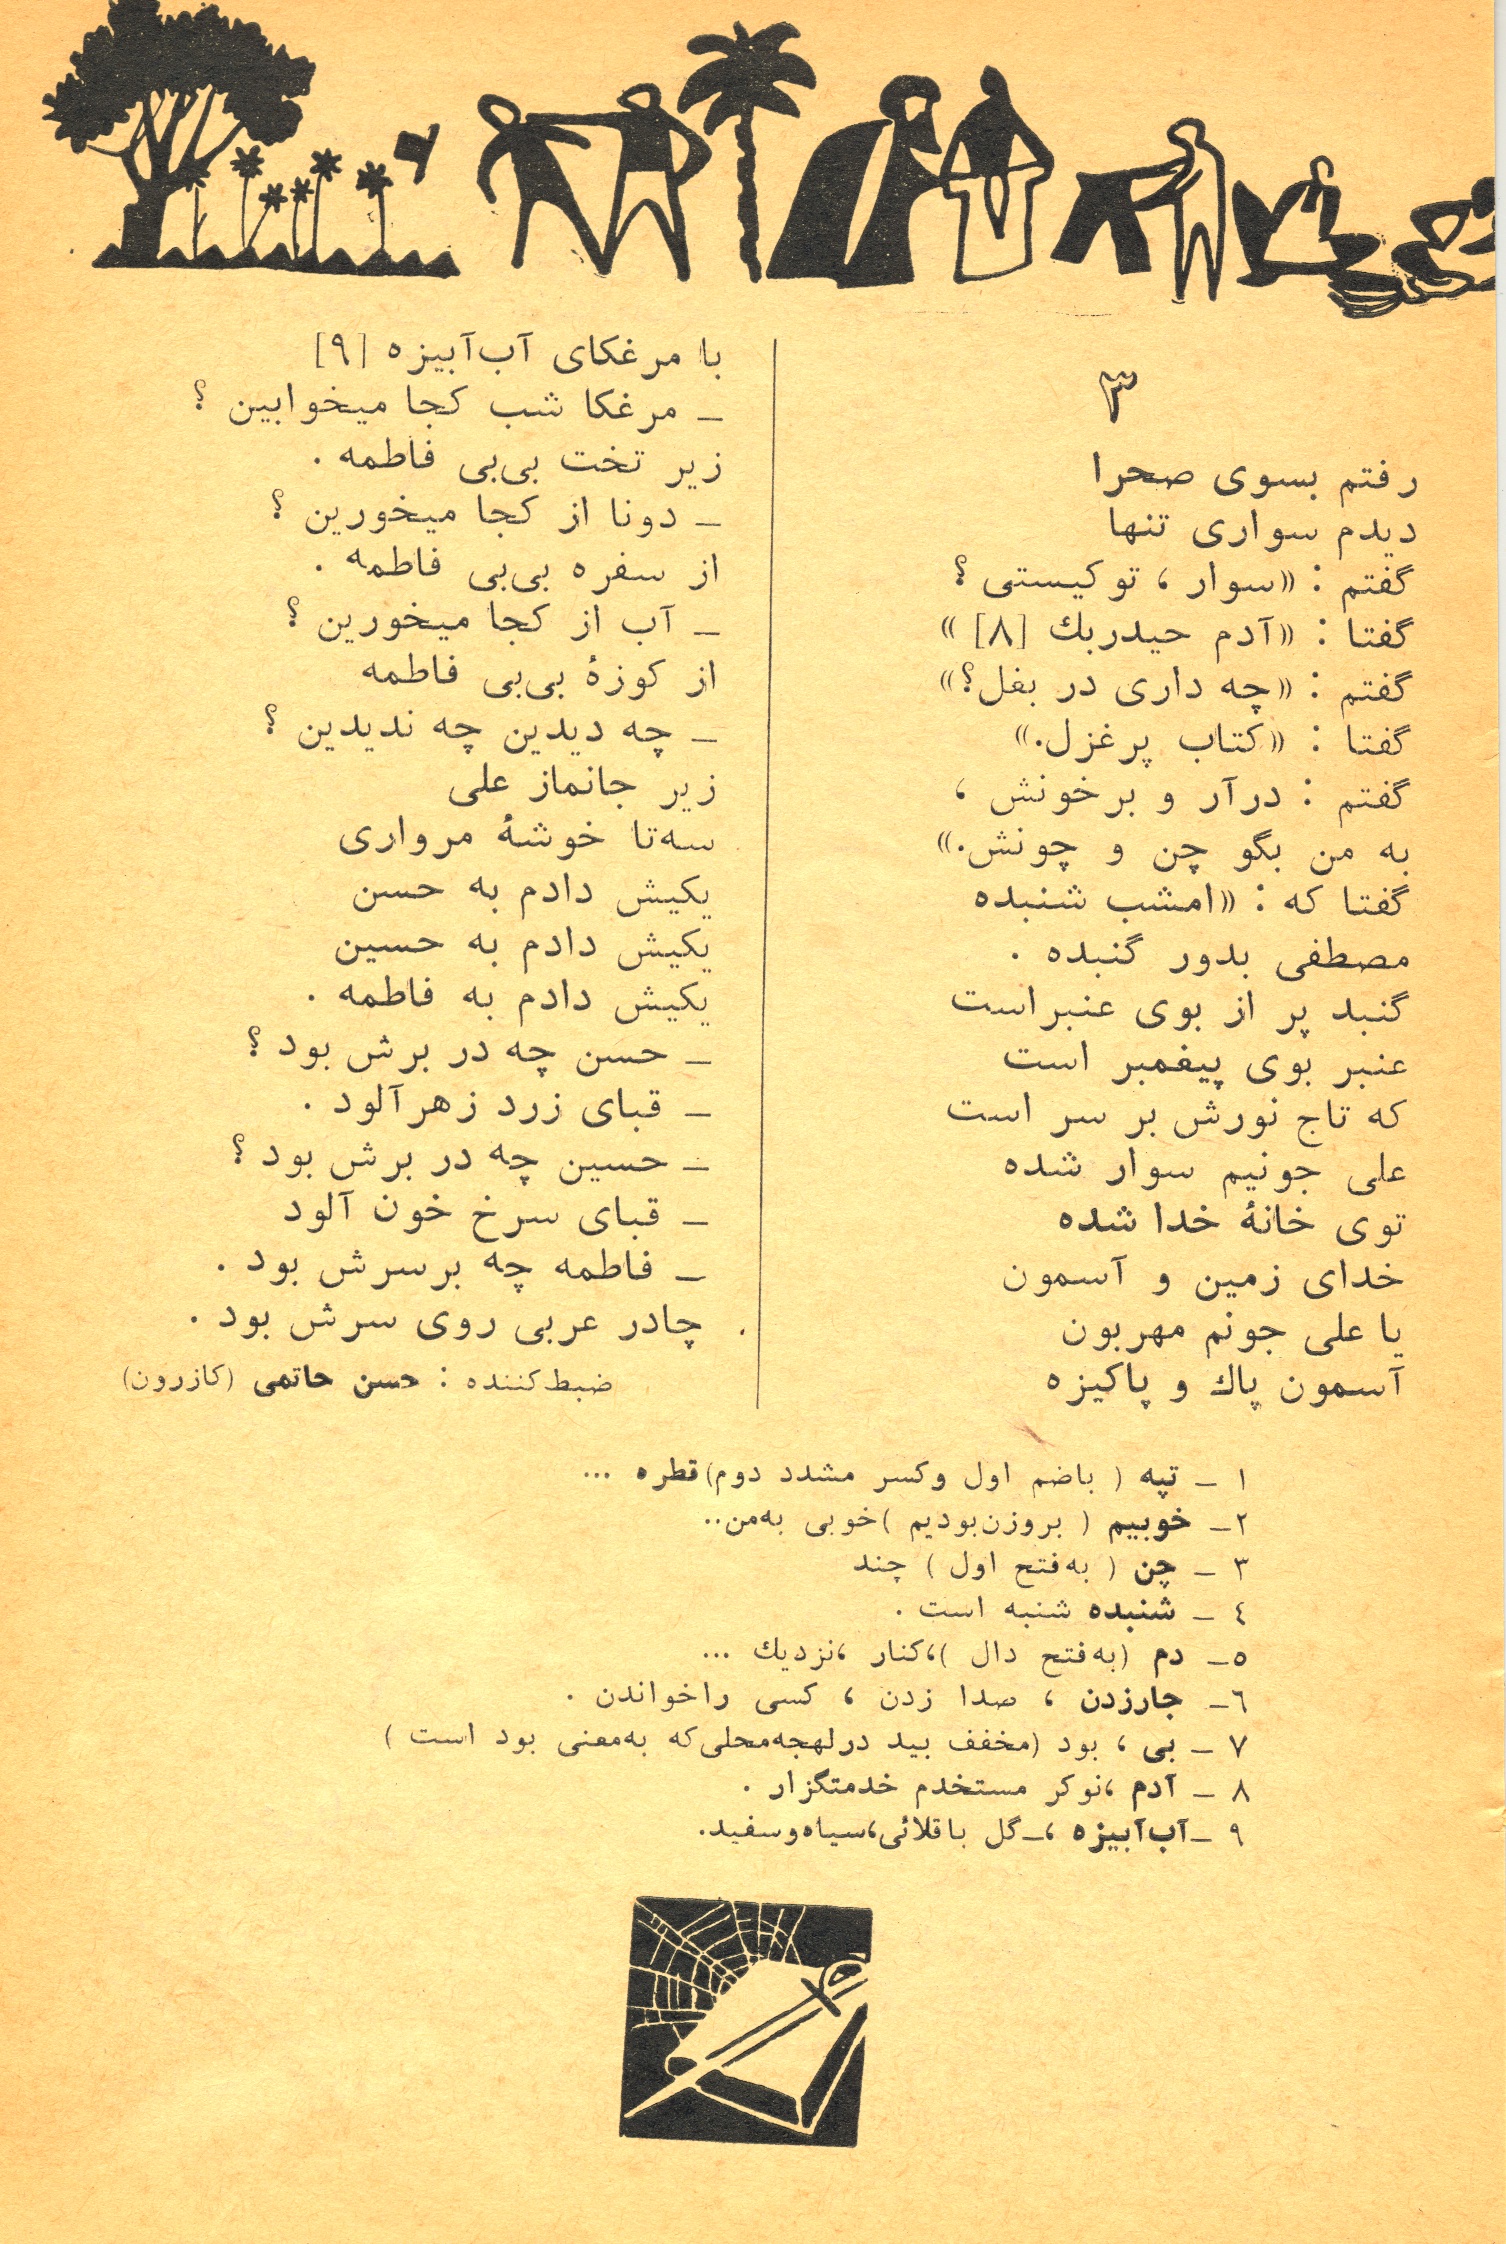 ۳
رفتم بسوی صحرا
دیدم سواری تنها
گفتم : «سوار ، تو کیستی ؟
گفتا : «آدم حیدربك [۸] »
گفتم : «چه داری در بغل؟»
گفتا : «کتاب پرغزل.»
گفتم : درآر و برخونش ،
به من بگو چن و چونش.»
گفتا که : «امشب شنبده
مصطفی بدور گنبده .
گنبد پر از بوی عنبراست
عنبر بوی پیغمبر است
که تاج نورش بر سر است
علی جونیم سوار شده
توی خانهٔ خدا شده
خدای زمین و آسمون
یا علی جونم مهربون
آسمون پاك و پاکیزه
با مرغکای آب‌آبیزه [۹]
ـ مرغکا شب کجا میخوابین ؟
زیر تخت بی‌بی فاطمه .
ـ دونا از کجا میخورین ؟
از سفره بی‌بی فاطمه .
ـ آب از کجا میخورین ؟
از کوزهٔ بی‌بی فاطمه
ـ چه دیدین چه ندیدین ؟
زیر جانماز علی
سه‌تا خوشهٔ مرواری
یکیش دادم به حسن
یکیش دادم به حسین
یکیش دادم به فاطمه .
ـ حسن چه در برش بود ؟
ـ قبای زرد زهرآلود .
ـ حسین چه در برش بود ؟
ـ قبای سرخ خون آلود
ـ فاطمه چه برسرش بود .
چادر عربی روی سرش بود .
ضبط‌کننده : حسن حاتمی (کازرون)
۱ ـ تپه ( باضم اول وکسر مشدد دوم)قطره ...
۲ـ خوبیم ( بروزن‌بودیم )خوبی به‌من..
۳ ـ چن ( به‌فتح اول ) چند
٤ ـ شنبده شنبه است .
٥ـ دم (به‌فتح دال )،کنار ،نزدیك ...
٦ـ جارزدن ، صدا زدن ، کسی راخواندن .
۷ ـ بی ، بود (مخفف بید درلهجه‌محلی‌که به‌معنی بود است )
۸ ـ آدم ،نوکر مستخدم خدمتگزار .
۹ ـآب‌آبیزه ،ـگل باقلائی،سیاه‌وسفید.